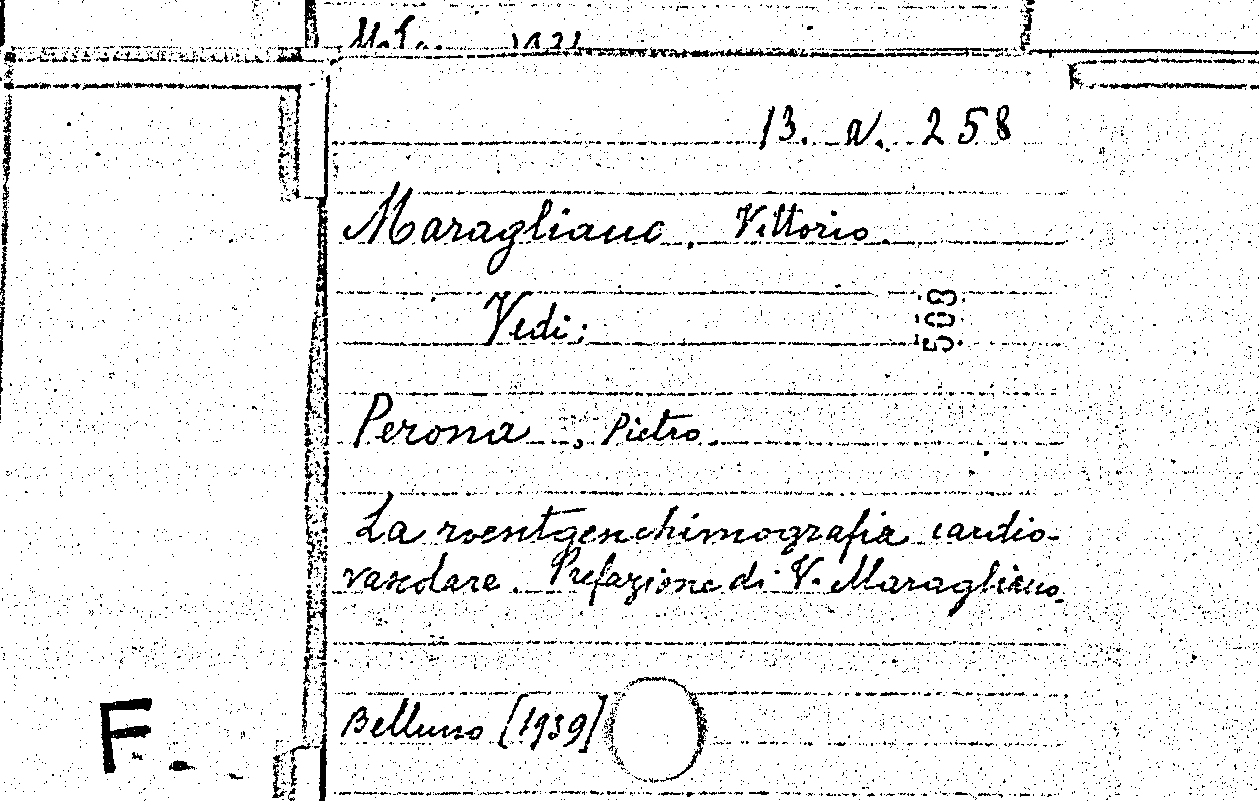 13. N. 258
Maragliano, Vittorio.
Vedi:
508
Perona, Pietro.
La roentgenchimografia cardio-
vascolare. Prefazione di V. Maragliano.
Belluno [1939]
F.